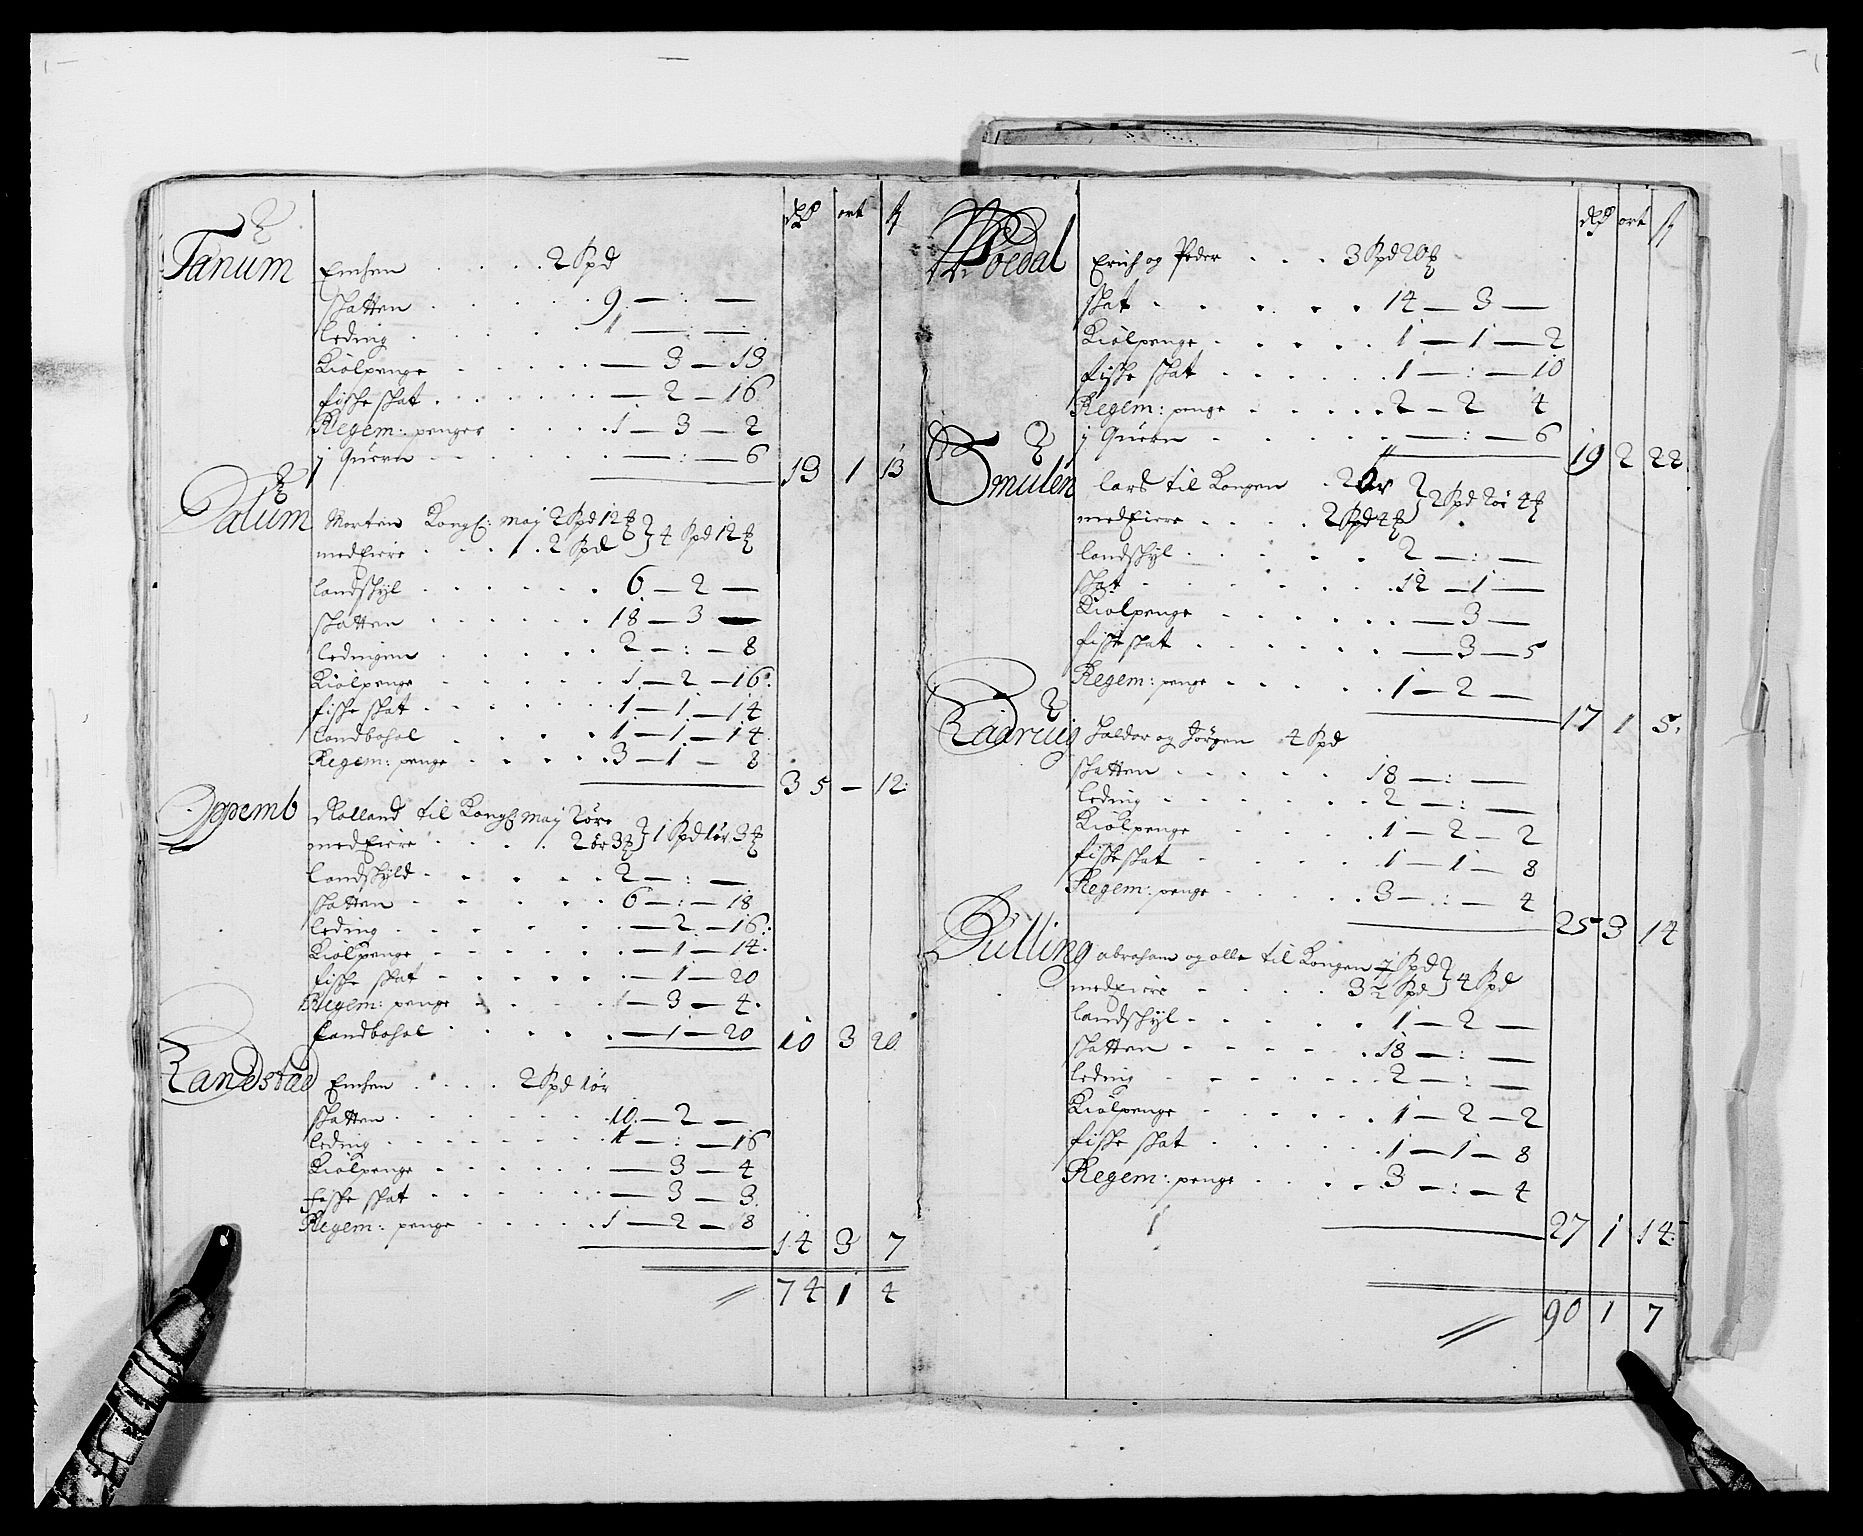 dlr ort ß
Tanum Enchen . . . . 2 Spd
skatten . . . . . 9 — : —
leding . . . . . 1 — : —
Kiølpenge . . . . . — 3 — 13
fiske skat . . . . . — 2 — 16
Regem: penger . . . . 1 — 3 — 2
j Quern . . . . . — : — 6
13 1 13
Dalum Morten Kongl: May 2 Spd 12 ℔
medeiere . . . . 2 Spd } 4 Spd 12 ℔
landskyl . . . . . 6 — 2 —
skatten . . . . . 18 — 3 —
ledingen . . . . . 2 — : — 8
Kiølpenge . . . . . 1 — 2 — 16
fiske skat . . . . . 1 — 1 — 14
landbohol . . . . 1 — 1 — 14
Regem: penge . . . . 3 — 1 — 8
35 — 12
Oppemb Rolland til Kongl May 2 øre
medeiere . . . . 2 ør 3 ℔ } 1 Spd 1 ør 3 ℔
landskyld . . . . . 2 — : —
skatten . . . . . 6 — : — 18
leding . . . . . — 2 — 16
Kiølpenge . . . . . — 1 — 14
fiske skat . . . . . — 1 — 20
Regem: penge . . . . 1 — 3 — 4
Landbohol . . . . — 1 — 20
10 3 20
Randstad Enchen . . . . 2 Spd 1 ør
skatten . . . . . 10 — 2 —
leding . . . . . 1 — : — 16
Kiølpenge . . . . . — 3 — 4
feske skat . . . . . — 3 — 3
Regem: penge . . . . 1 — 2 — 8
14 3 7
74 1 4
dlr ort ß
Woedal Erich og Peder . . . 3 Spd 20 ℔
skat . . . . . 14 — 3 —
Kiølpenge . . . . . 1 — 1 — 2
fiske skat . . . . . 1 — : — 10
Regem: penge . . . . 2 — 2 4
j Quern . . . . . — : — 6
19 2 22
Smulen lars til Kongen . 2 ør
medeiere . . . . 2 Spd 4 ℔ } 2 Spd 2 ør 4 ℔
landskyl . . . . . 2 — : —
skat . . . . . 12 — 1 —
Kiølpenge . . . . . — 3 —
fiske skat . . . . . — 3 — 5
Regem: penge . . . . 1 — 2 —
17 1 5
Raaruig Haldor og Jørgen 4 Spd
skatten . . . . . 18 — : —
leding . . . . . 2 — : —
Kiølpenge . . . . . 1 — 2 — 2
fiske skat . . . . . 1 — 1 — 8
Regem: penge . . . . 3 — : — 4
25 3 14
Dulling abraham og olle til Kongen ½ Spd
medeiere . . . . 3 ½ Spd } 4 Spd
landskyl . . . . . 1 — 2 —
skatten . . . . . 18 — : —
leding . . . . . 2 — : —
Kiølpenge . . . . . 1 — 2 — 2
fiske skat . . . . . 1 — 1 — 8
Regem: penge . . . . 3 — : — 4
27 1 14
90 1 7